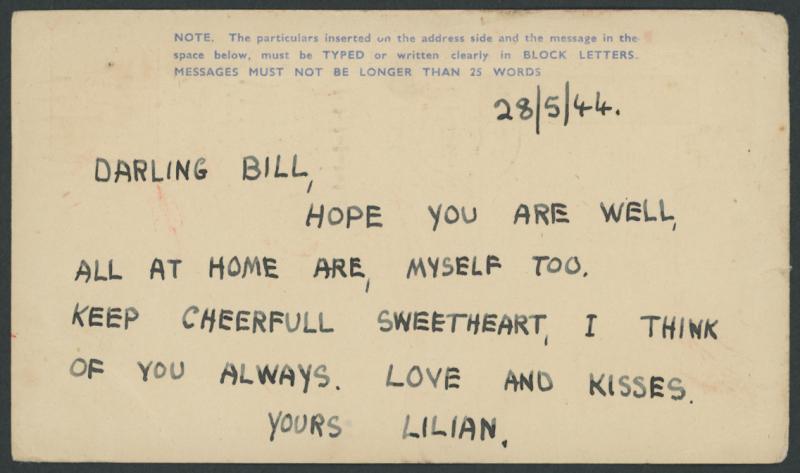 NOTE. The particulars inserted on the address side and the message in the
space below, must be TYPED or written clearly in BLOCK LETTERS.
MESSAGES MUST NOT BE LONGER THAN 25 WORDS
28/5/44.
DARLING BILL,
HOPE YOU ARE WELL,
ALL AT HOME ARE, MYSELF TOO.
KEEP CHEERFULL SWEETHEART, I THINK
OF YOU ALWAYS. LOVE AND KISSES.
YOURS LILIAN.